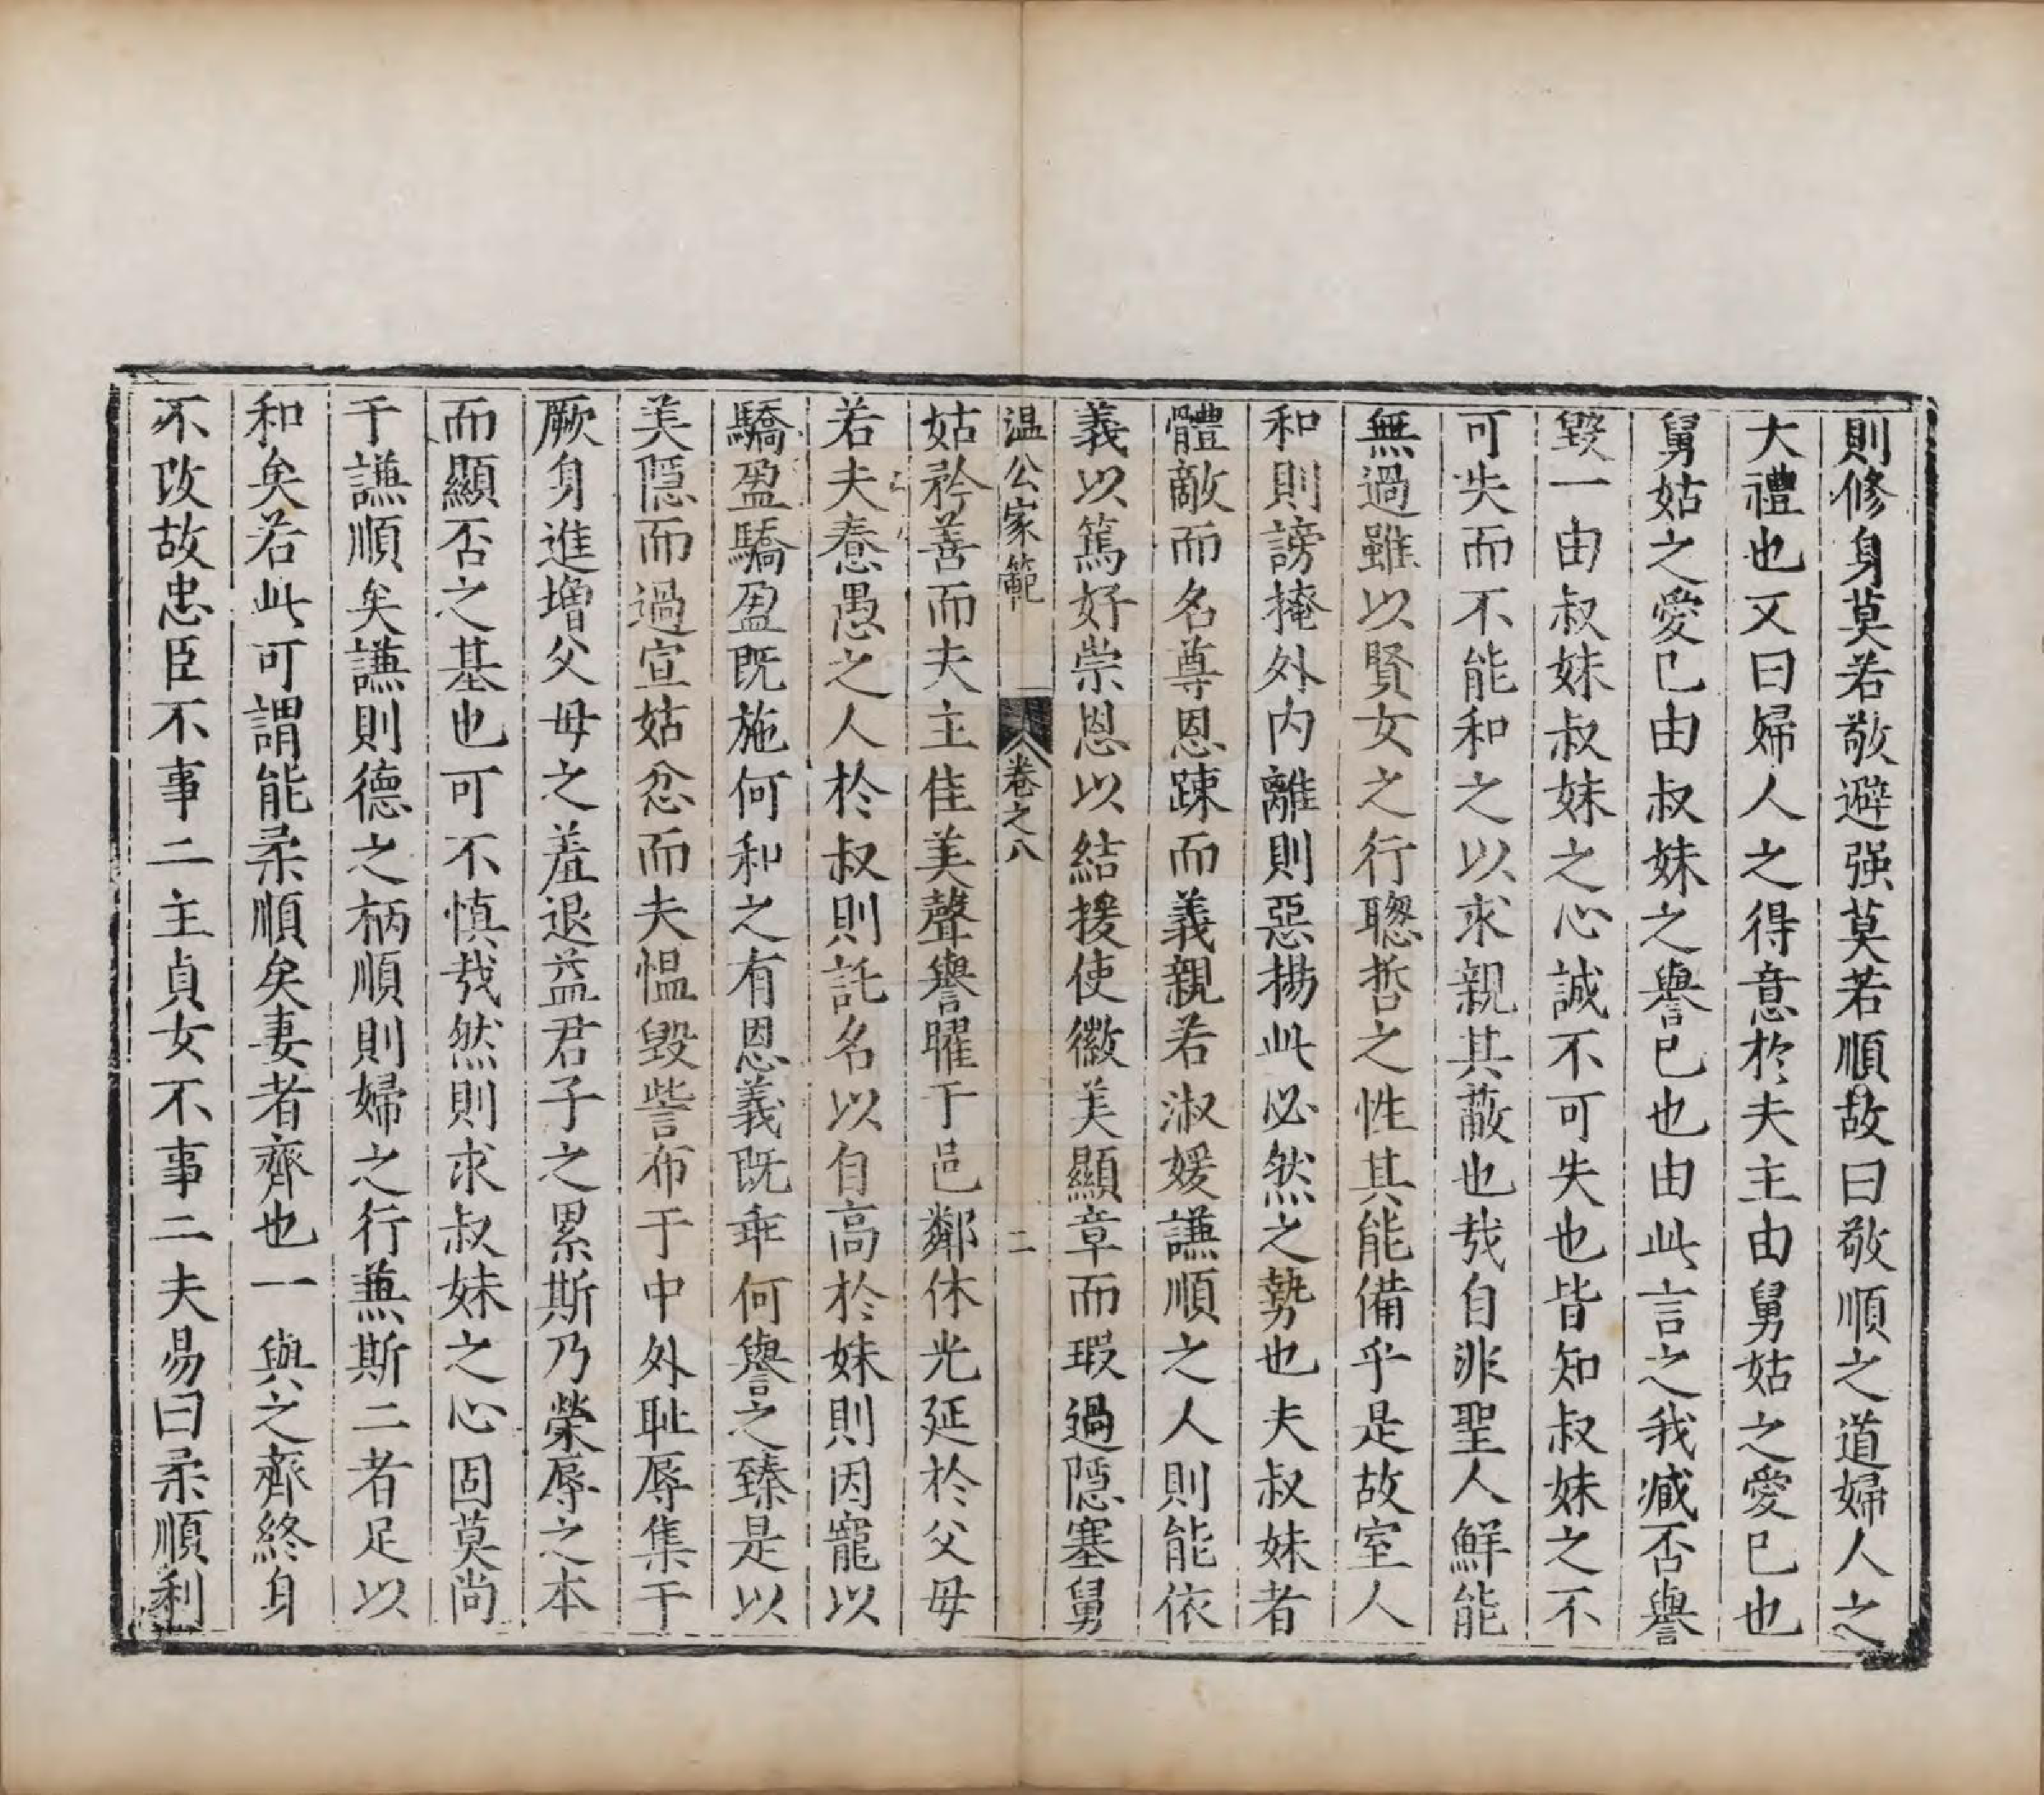 則修身莫若敬避强莫若順故曰敬順之道婦人之
大禮也又曰婦人之得意於夫主由舅姑之愛已也
舅姑之愛已由叔妹之譽已也由此言之我臧否譽
毀一由叔妹叔妹之心誠不可失也皆知叔妹之不
可失而不能和之以求親其蔽也哉自非聖人鮮能
無過雖以賢女之行聰哲之性其能備乎是故室人
和則謗掩外內離則惡揚此必然之勢也夫叔妹者
體敵而名尊恩踈而義親若淑媛謙順之人則能依
義以篤好崇恩以結援使徽美顯章而瑕過隱塞舅
温公家範 卷之八 二
姑矜善而夫主佳美聲譽曜于邑鄰休光延於父母
若夫惷愚之人於叔則託名以自高於妹則因寵以
驕盈驕盈既施何和之有恩義既乖何譽之臻是以
美隱而過宣姑忿而夫慍毀訾布于中外耻辱集于
厥身進增父母之羞退益君子之累斯乃榮辱之本
而顯否之基也可不慎哉然則求叔妹之心固莫尚
于謙順矣謙則德之柄順則婦之行兼斯二者足以
和矣若此可謂能柔順矣妻者齊也一與之齊終身
不改故忠臣不事二主貞女不事二夫易曰柔順利